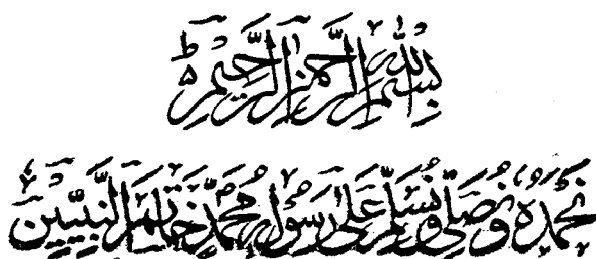 بِسْمِ اللهِ الرَّحْمٰنِ الرَّحِيْمِ ؕ
نَحْمَدُهٗ وَنُصَلِّیْ وَنُسَلِّمُ عَلٰی رَسُوْلِهٖ مُحَمَّدٍ خَاتَمِ النَّبِيِّيْنَ